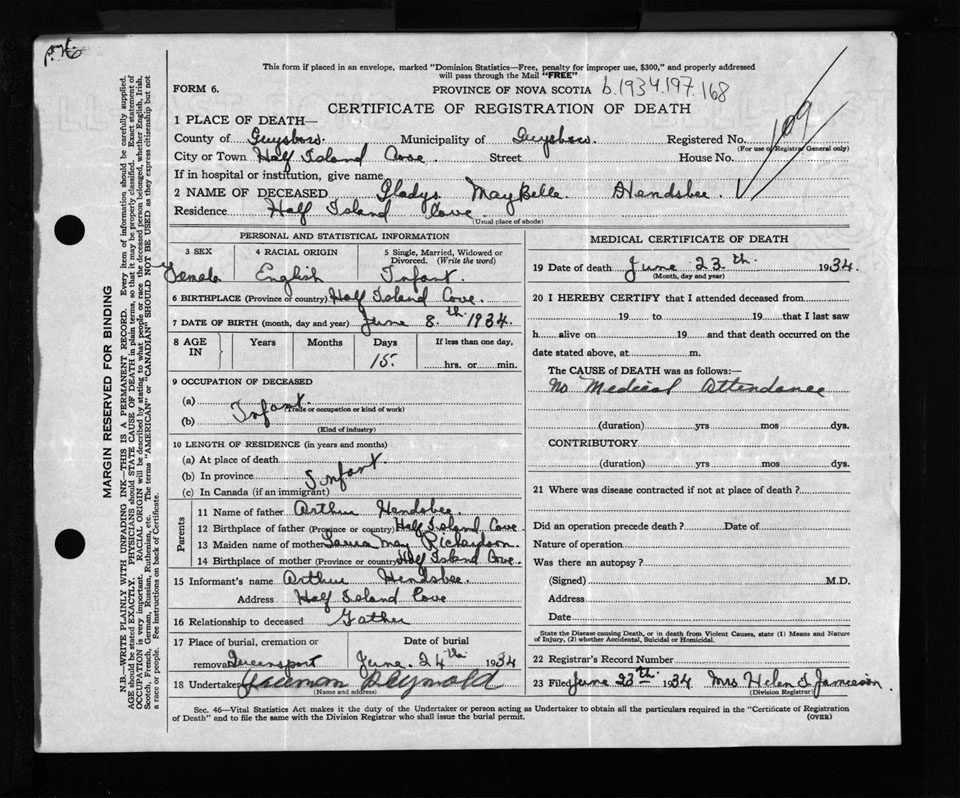 P.H.
This form if placed in an envelope, marked "Dominion Statistics—Free, penalty for improper use, $300," and properly addressed
will pass through the Mail "FREE"
FORM 6.
PROVINCE OF NOVA SCOTIA b.1934.197.168
CERTIFICATE OF REGISTRATION OF DEATH
1 PLACE OF DEATH—
County of Guysboro Municipality of Guysboro Registered No. 109
(For use of Registrar General only)
City or Town Half Island Cove Street House No.
If in hospital or institution, give name
2 NAME OF DECEASED Gladys MayBelle Hendsbee
Residence Half Island Cove
(Usual place of abode)
PERSONAL AND STATISTICAL INFORMATION
3 SEX 4 RACIAL ORIGIN 5 Single, Married, Widowed or
Divorced. (Write the word)
Female English Infant.
6 BIRTHPLACE (Province or country) Half Island Cove.
7 DATE OF BIRTH (month, day and year) June 8th 1934.
8 AGE IN Years Months Days If less than one day,
15. hrs. or min.
9 OCCUPATION OF DECEASED
(a) Infant.
(Trade or occupation or kind of work)
(b)
(Kind of industry)
10 LENGTH OF RESIDENCE (in years and months)
(a) At place of death
(b) In province Infant.
(c) In Canada (if an immigrant)
Parents
11 Name of father Arthur Hendsbee.
12 Birthplace of father (Province or country) Half Island Cove.
13 Maiden name of mother Laura May Richardson.
14 Birthplace of mother (Province or country) Half Island Cove.
15 Informant's name Arthur Hendsbee.
Address Half Island Cove
16 Relationship to deceased Father
17 Place of burial, cremation or Date of burial
removal Queensport June. 24th 1934
18 Undertaker
(Name and address)
MEDICAL CERTIFICATE OF DEATH
19 Date of death June 23th. 1934.
(Month, day and year)
20 I HEREBY CERTIFY that I attended deceased from
19 to 19 that I last saw
h alive on 19 and that death occurred on the
date stated above, at m.
The CAUSE of DEATH was as follows:—
No Medical Attendance
(duration) yrs mos dys.
CONTRIBUTORY
(duration) yrs mos dys.
21 Where was disease contracted if not at place of death?
Did an operation precede death? Date of
Nature of operation
Was there an autopsy?
(Signed) M.D.
Address
Date
State the Disease causing Death, or in death from Violent Causes, state (1) Means and Nature
of Injury, (2) whether Accidental, Suicidal or Homicidal.
22 Registrar's Record Number
23 Filed June 23th 1934 Mrs Helen S. Jamieson.
(Division Registrar)
Sec. 46—Vital Statistics Act makes it the duty of the Undertaker or person acting as Undertaker to obtain all the particulars required in the "Certificate of Registration
of Death" and to file the same with the Division Registrar who shall issue the burial permit.
(OVER)
MARGIN RESERVED FOR BINDING
N.B.—WRITE PLAINLY WITH UNFADING INK—THIS IS A PERMANENT RECORD. Every item of information should be carefully supplied.
AGE should be stated EXACTLY. PHYSICIANS should STATE CAUSE OF DEATH in plain terms, so that it may be properly classified. Exact statement of
OCCUPATION is very important. RACIAL ORIGIN will be described by stating to what people or race the deceased person belonged, whether English, Irish,
Scotch, French, German, Russian, Ruthenian, etc. The terms "AMERICAN" or "CANADIAN" SHOULD NOT BE USED as they express citizenship but not
a race or people. See instructions on back of Certificate.